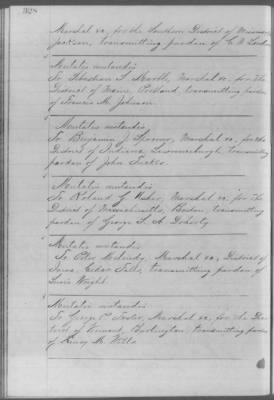 Marshal &c, for the Southern District of
Jackson, transmitting pardon of C. W.
Mutatis mutandis
To Sebastian S. Marble, Marshal &c. for The
District of Maine, Portland, transmitting pardon
of Francis M. Johnson.
Mutatis mutandis
To Benjamin J. Spooner, Marshal &c, for the
District of Indiana, Lawrenceburgh transmitting
pardon of John
Mutatis mutandis.
To Roland G. Usher, Marshal &c, for The
District of Massachusetts, Boston, transmitting
pardon of George F. A. Doherty
Mutatis mutandis
To Peter Melendy, Marshal &c, District of
Iowa, Cedar Falls, transmitting pardon of
Lewis Wright.
Mutatis mutandis.
To George P. Foster, Marshal &c, for the Dis-
trict of Vermont, Burlington, transmitting pardon
of Henry M. Wills